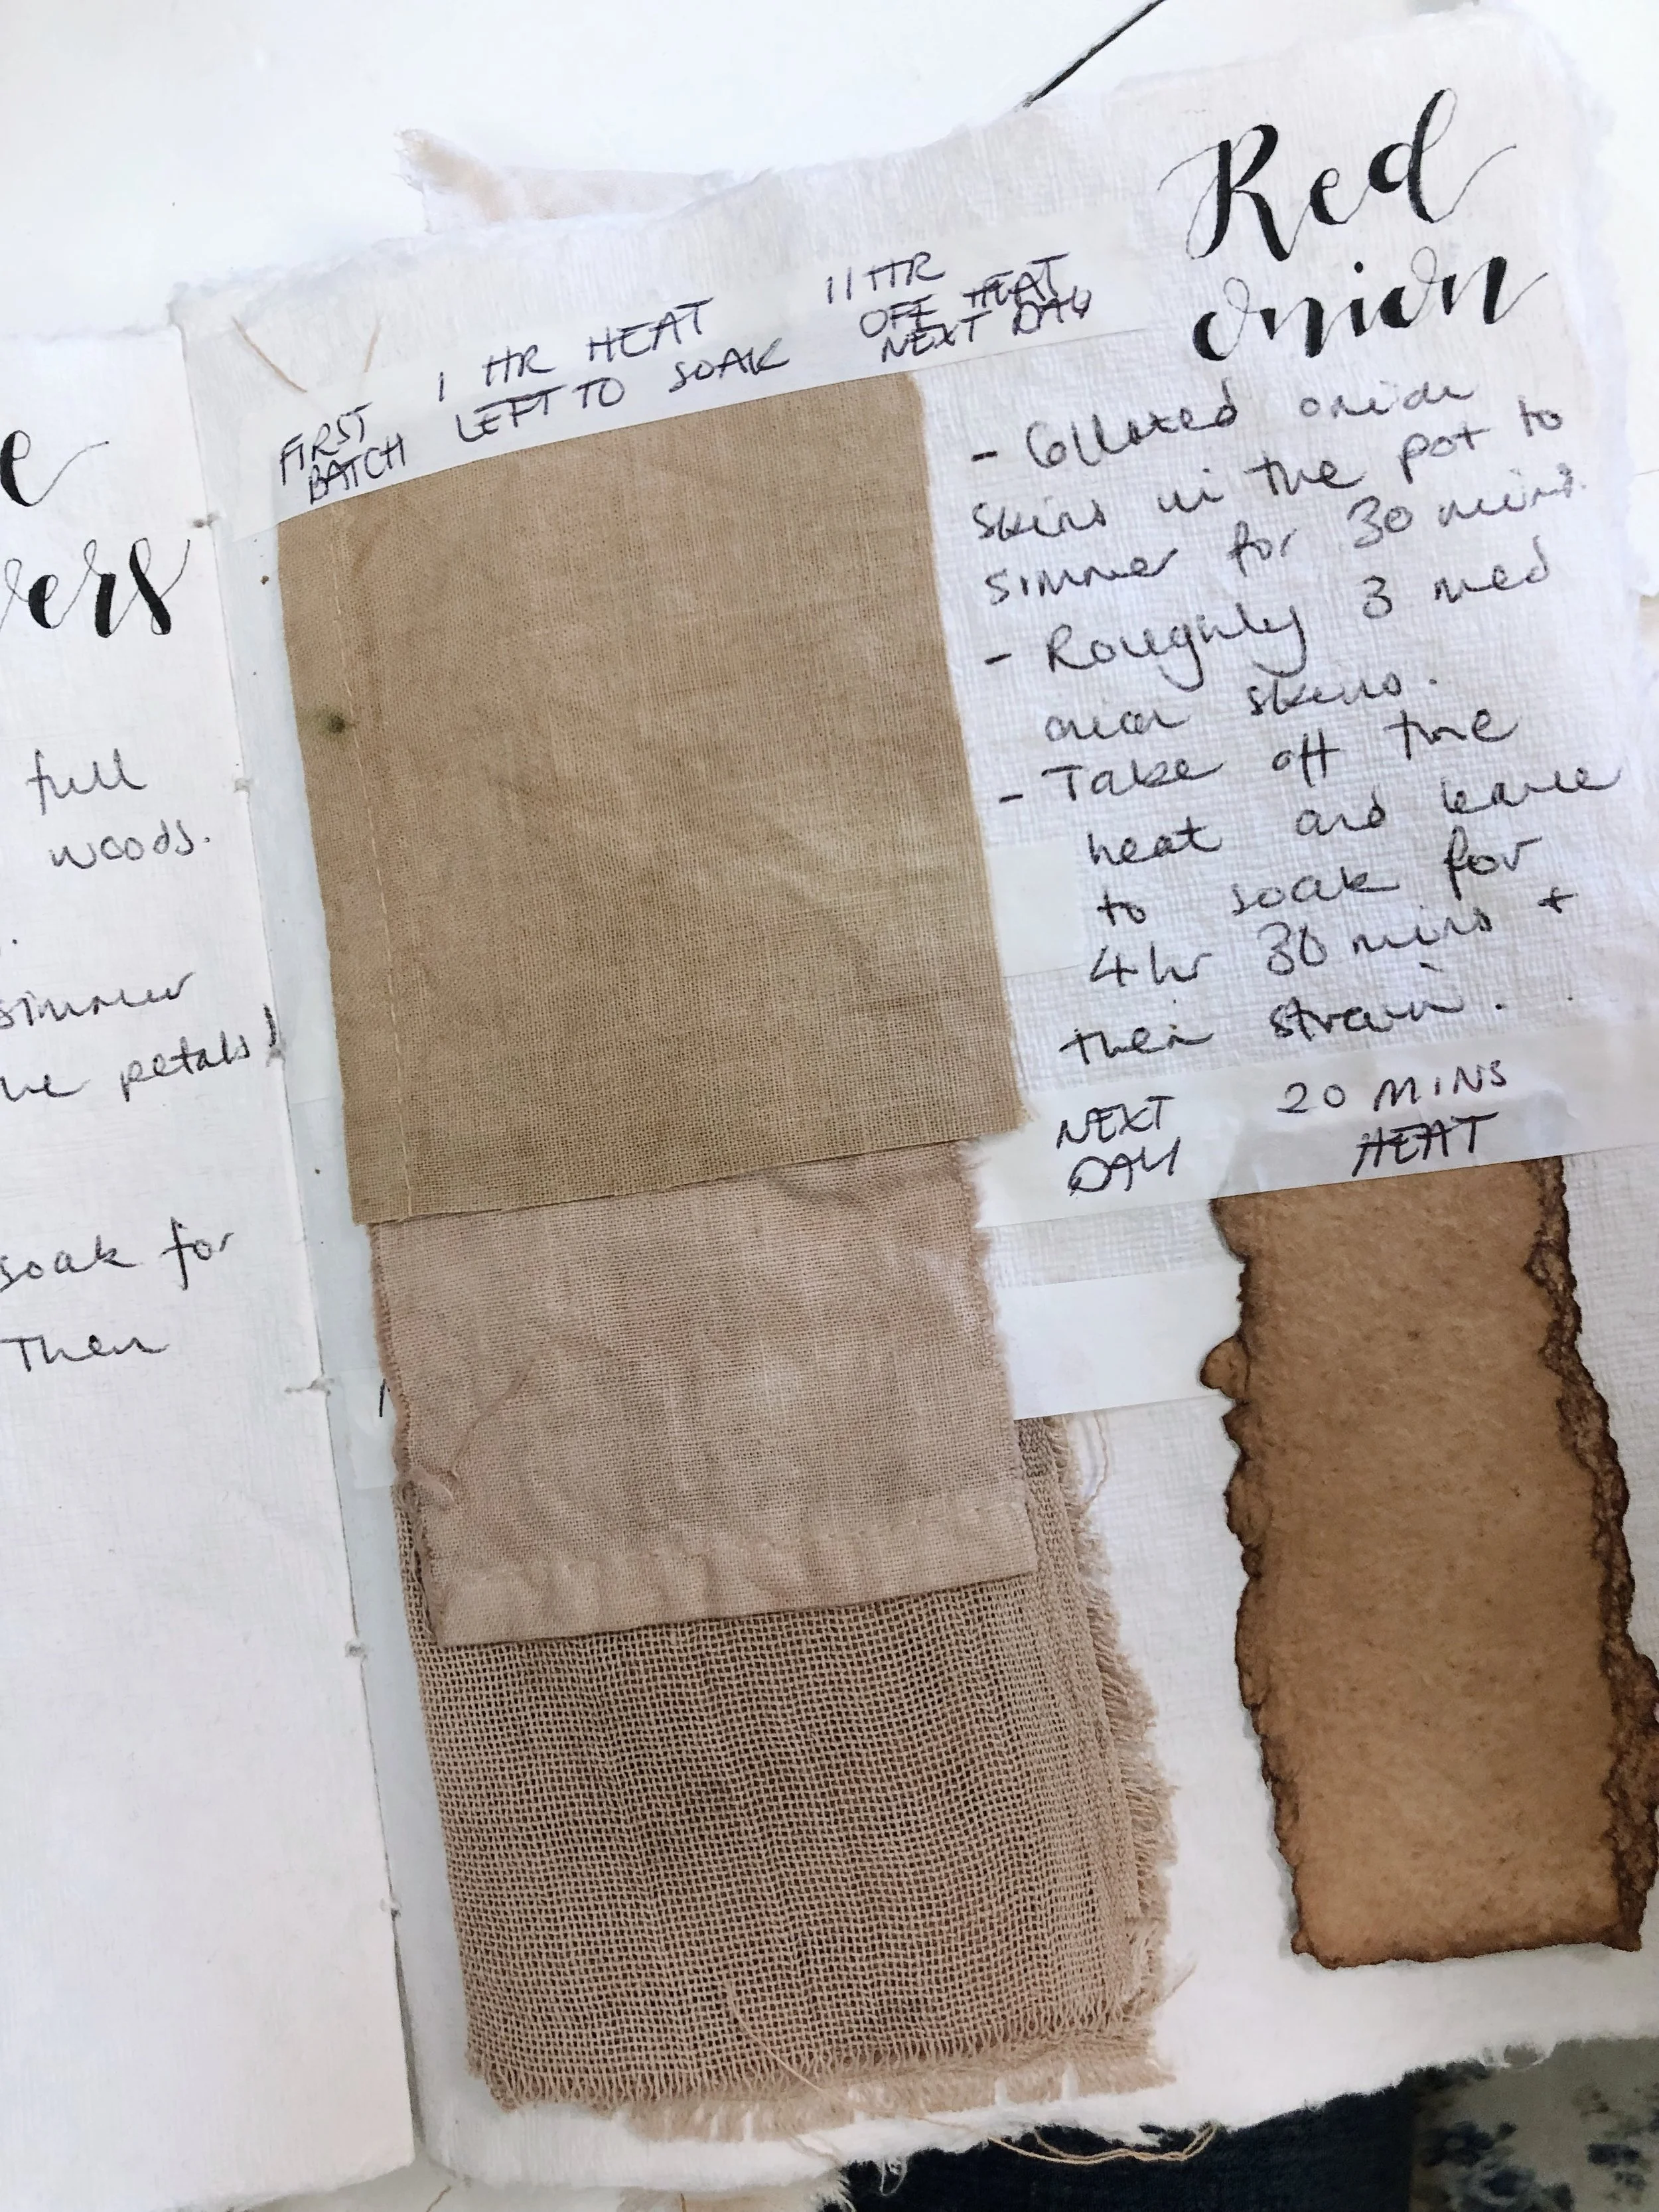 e
ers
full
woods.
simmer
he petals)
soak for
Then
Red
onion
FIRST
BATCH
1 HR HEAT
LEFT TO SOAK
11 HR
OFF HEAT
NEXT DAY
- Collected onion
skins in the pot to
simmer for 30 mins.
- Roughly 3 med
onion skins.
- Take off the
heat and leave
to soak for
4hr 30 mins +
then strain.
NEXT
DAY
20 MINS
HEAT